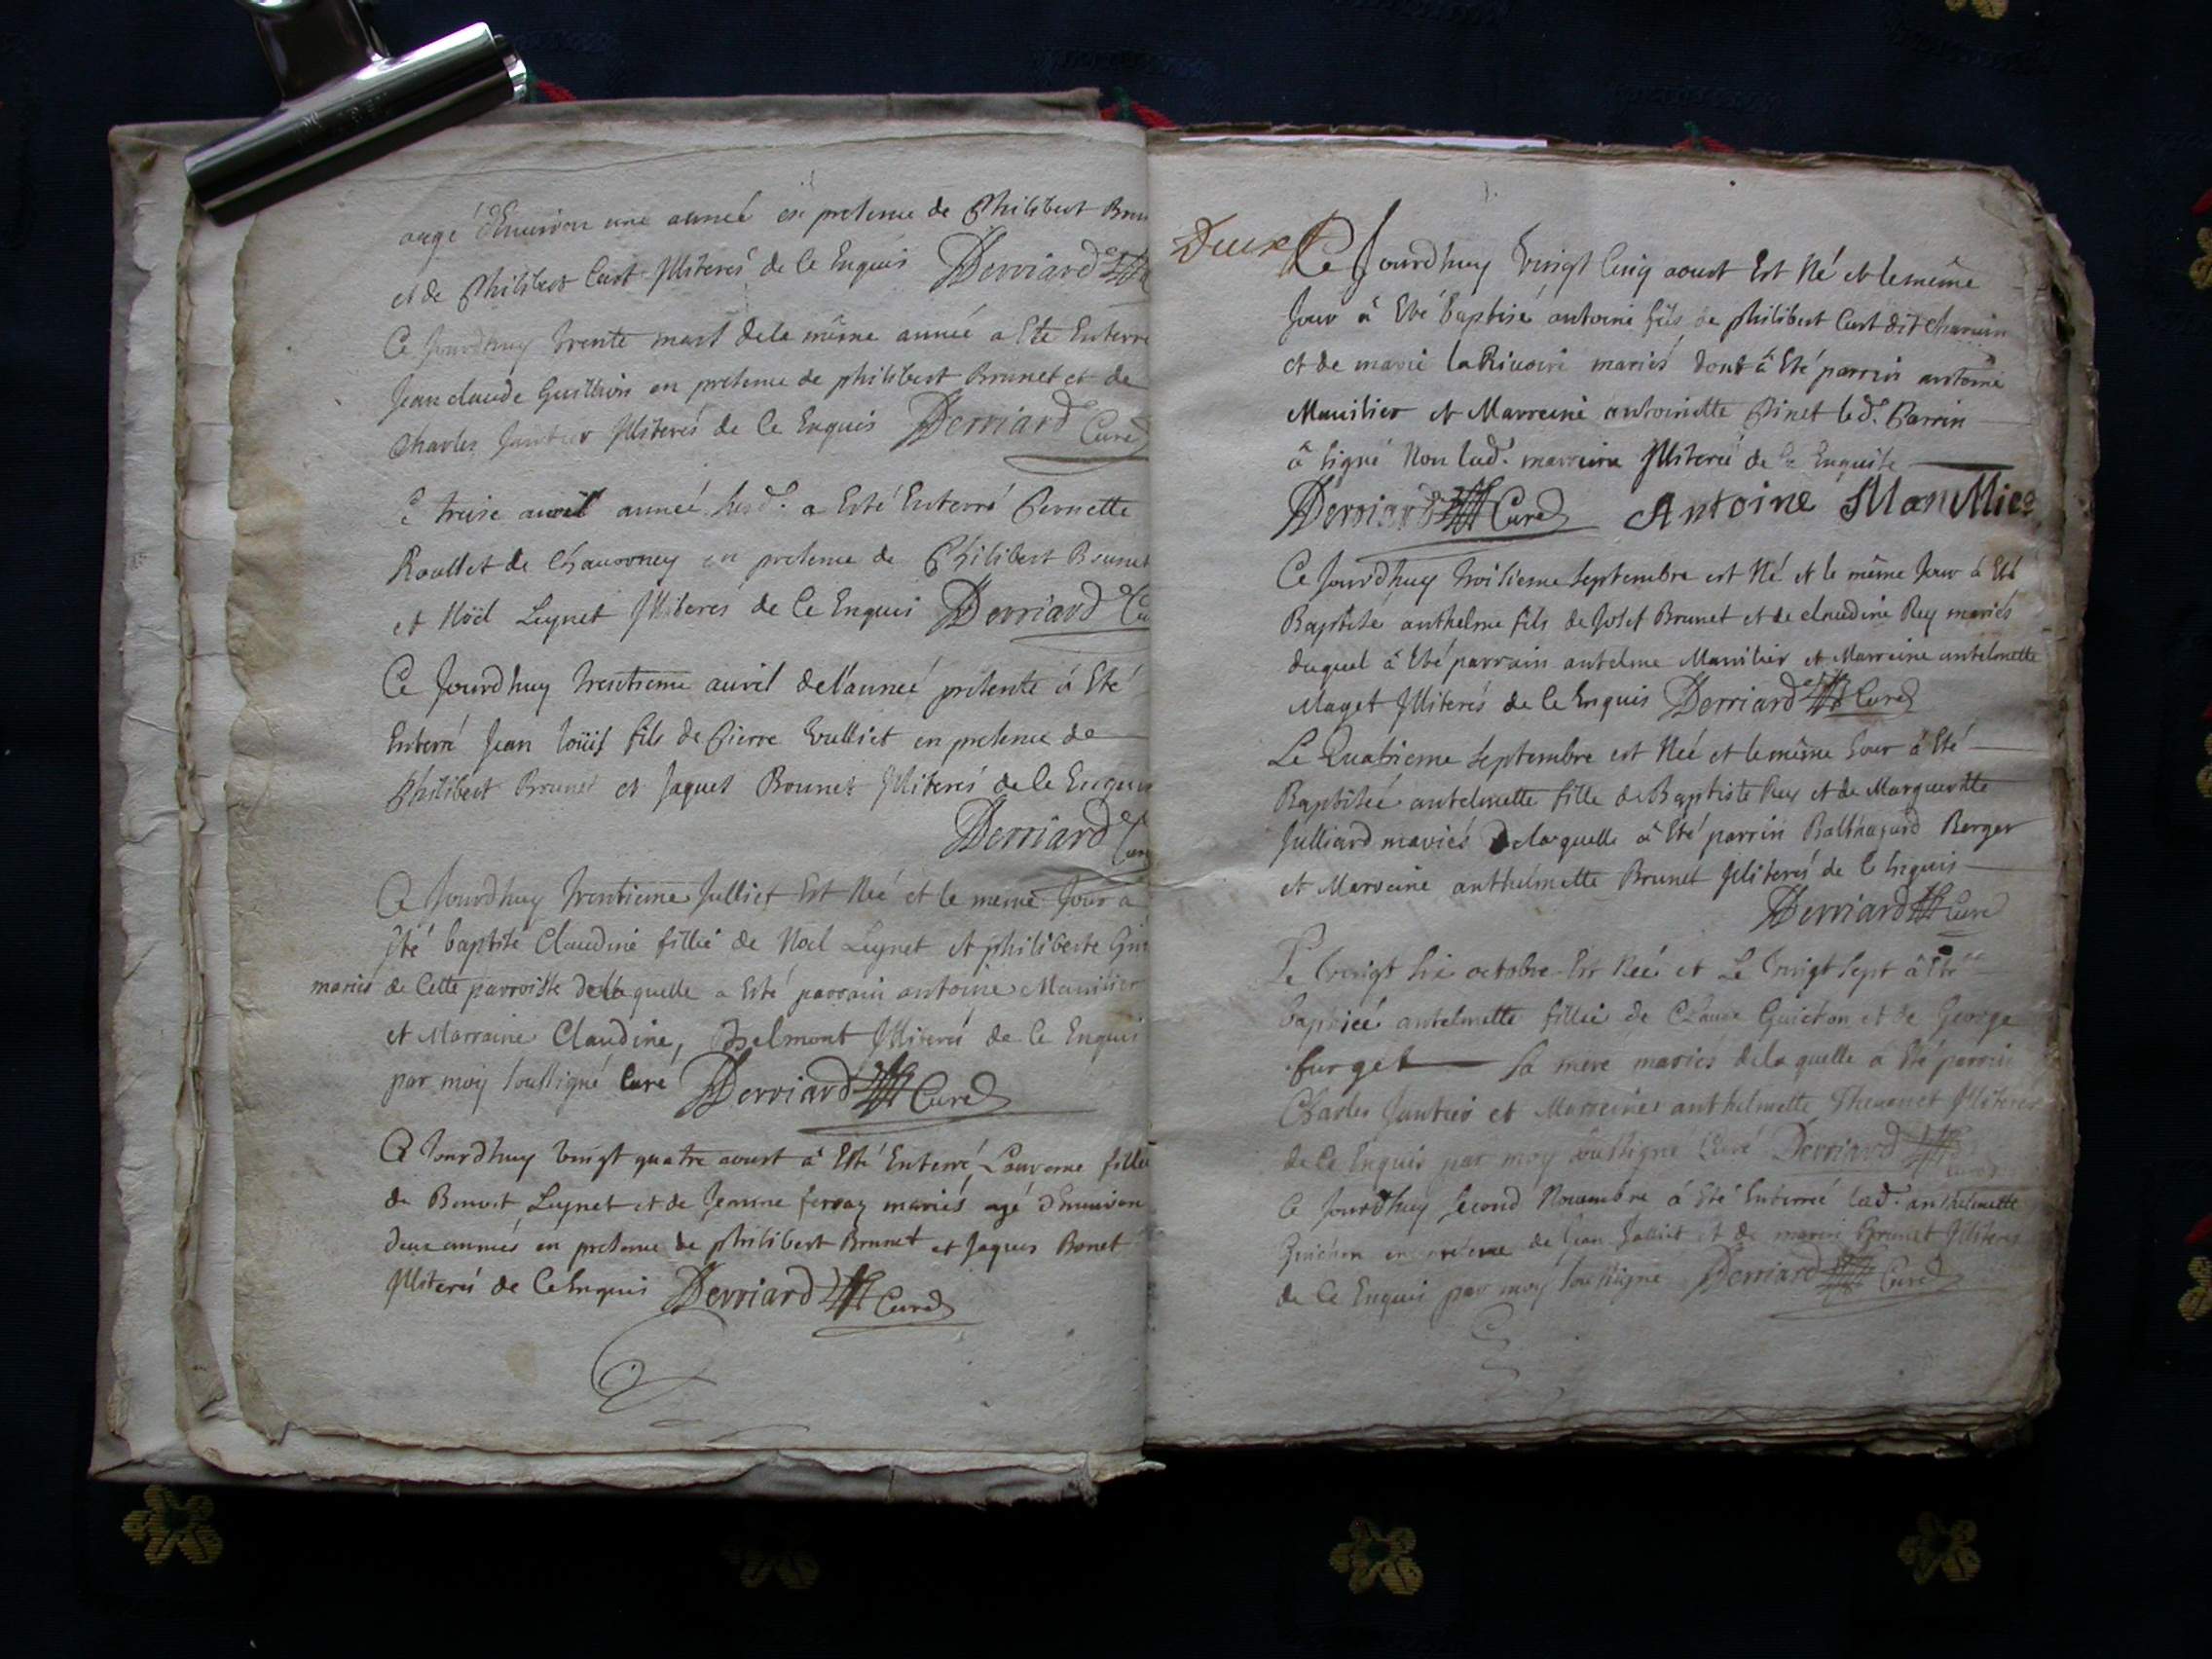 augé d'Enuiron une anneé en presence de Philibert Brun
et de Philibert Curt Jlliterés de Ce Enquis Derriard
Ce Jourdhuy trente mars dela même anneé a Eté Enterré
Jean claude Guillion en presence de philibert Brunet et de
Charles Jantier Jlliterés de Ce Enquis Derriard Curé
Ce treise auril anneé susd. a Esté Enterré Pernette
Roullet de Chauorney en presence de Philibert Brunet
et Nöel Leynet Jlliterés de Ce Enquis Derriard Cu
Ce Jourdhuy trentieme auril del'anneé presente á Eté
Enterré Jean loüis fils de Pierre Vulliet en presence de
Philibert Brunet et Jaques Brunet Jlliterés de Ce Enquis
Derriard Cure
Ce Jourdhuy trentieme Julliet Est Neé et le meme Jour a
Eté baptisé Claudine fillie de Noel Leynet et philiberte
mariés de Cette parroisse delaquelle a Esté parrain antoine Manilier
et Marraine Claudine, Belmont Jlliterés de Ce Enquis
par moy soussigné Curé Derriard Curé
Ce Jourdhuy vingt quatre aoust â Eté Enterré, fillie
de Benoit Leynet et de Jemme mariés agé d'Enuiron
deux anneés en presence de philibert Brunet et Jaques Bonet
Jlliterés de Ce Enquis Derriard Curé
Deux
Ce Jourdhuy vingt Cinq aoust Est Né et lemême
Jour â Eté baptisé antoine fils de philibert Curt dit charuin
et de marie laRiuoire mariés dont â Eté parrin antoine
Manilier et Marreine antoinette Pinet led. Parrin
â signé Non lad. marreine Jlliterée de Ce Enquise
Derriard Curé Antoine Manllier
Ce Jourdhuy troisieme septembre est Né et le même Jour â Eté
Baptisé anthelme fils de Josef Brunet et de claudine Rey mariés
duquel â Eté parrain antelme Manilier et Marreine antelmette
Maget Jlliterés de Ce Enquis Derriard Curé
Le Quatrieme septembre est Neé et lemême Jour â Eté
Baptiseé antelmette fille de Baptiste Rey et de Margueritte
Julliard mariés delaquelle â Eté parrin Balthazard Berger
et Marreine anthelmette Brunet Jlliterés de Ce Enquis
Derriard Curé
Le vingt six octobre Est Neé et Le vingt sept â Eté
baptiseé antelmette fillie de Claude Guichon et de George
furget sa mere mariés delaquelle a Eté parrin
Charles Jantier et Marreine anthelmette Theuenet Jlliterés
de Ce Enquis par moy soussigné Curé Derriard Curé
Ce Jourdhuy second Nouembre á Eté Enterreé lad. anthelmette
Guichon en presence de Jean Julliet et de marin Brunet Jlliterés
de Ce Enquis par moy soussigné Derriard Curé